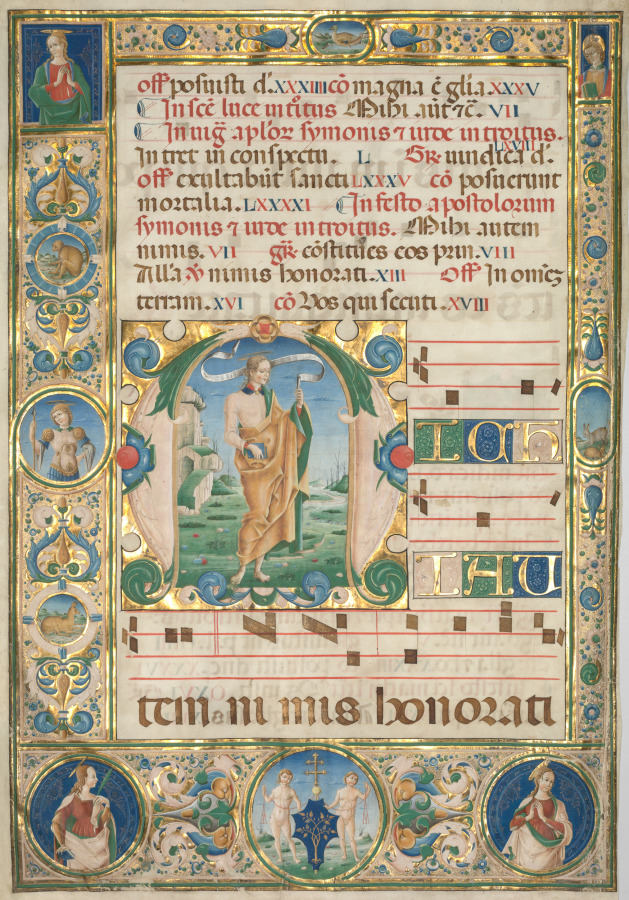 off posuisti d. XXXIII cō magna ē glīa. XXXV
In scē luce introitus Mihi aut ⁊c̄. VII
In uig̅ aplōr symonis ⁊ iude introitus.
LXXVIII
Intret in conspectu. L Gr̄ uindica d.
off exultabūt sancti LXXXV cō posuerunt
mortalia. LXXXXI In festo apostolorum
symonis ⁊ iude introitus. Mihi autem
nimis. VII gr̄ cōstitues eos prin. VIII
Allā V̄ nimis honorati. XIII Off In omēz
terram. XVI cō Vos qui secuti. XVIII
M
ICH
IAU
tem ni mis honorati